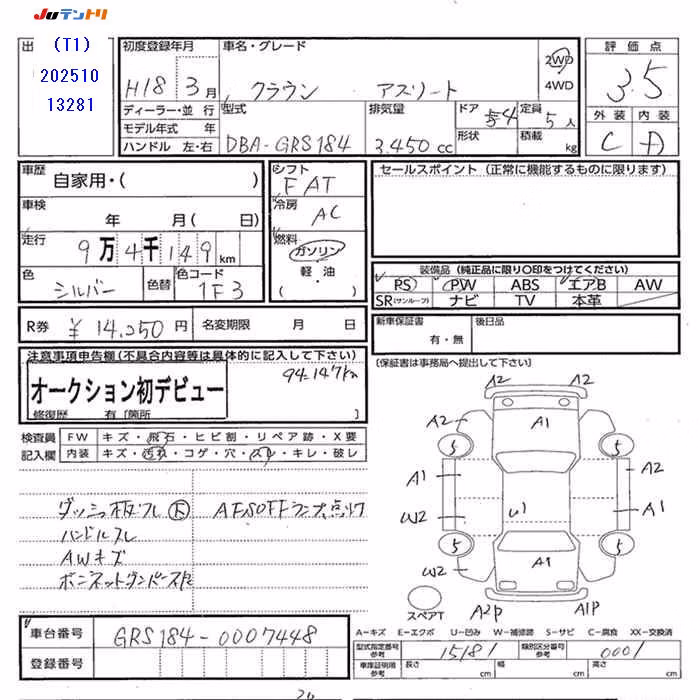 JUテントリ
出
(T1)
202510
13281
初度登録年月
H18 3月
車名・グレード
クラウン アスリート
2WD
4WD
評価点
3.5
外装 内装
C D
ディーラー・並 行
モデル年式 年
ハンドル 左・右
型式
DBA-GRS184
排気量
3.450 cc
ドア
4
形状
定員
5人
積載
kg
車歴
自家用・( )
車検
年 月( 日)
走行
9万4千149km
色
シルバー
色替
色コード
1F3
シフト
FAT
冷房
AC
燃料
ガソリン
軽・油
( )
セールスポイント (正常に機能するものに限ります)
装備品 (純正品に限り○印をつけてください)
PS PW ABS エアB AW
SR(サンルーフ) ナビ TV 本革
R券 ¥14.250円 名変期限 月 日
新車保証書
有・無
後日品
(保証書は事務局へ提出して下さい)
注意事項申告欄(不具合内容等は具体的に記入して下さい)
94.147km
オークション初デビュー
修復歴 有 [箇所 ]
検査員 FW キズ・飛石・ヒビ割・リペア跡・X要
記入欄 内装 キズ・汚れ・コゲ・穴・スレ・キレ・破レ
ダッシュ板ワレ 大 AFSOFFランプ点灯
ハンドルスレ
AWキズ
A2 A2
A2 A1
5 5
A1 A2
W2 U1 A1
5 5
W2 A1
スペアT
A2P A1P
A-キズ E-エクボ U-凹み W-補修跡 S-サビ C-腐食 XX-交換済
車台番号 GRS184-0007448
登録番号
型式指定番号
参考
15181
類別区分番号
参考
0001
車庫証明用
参考
長さ cm 幅 cm 高さ cm